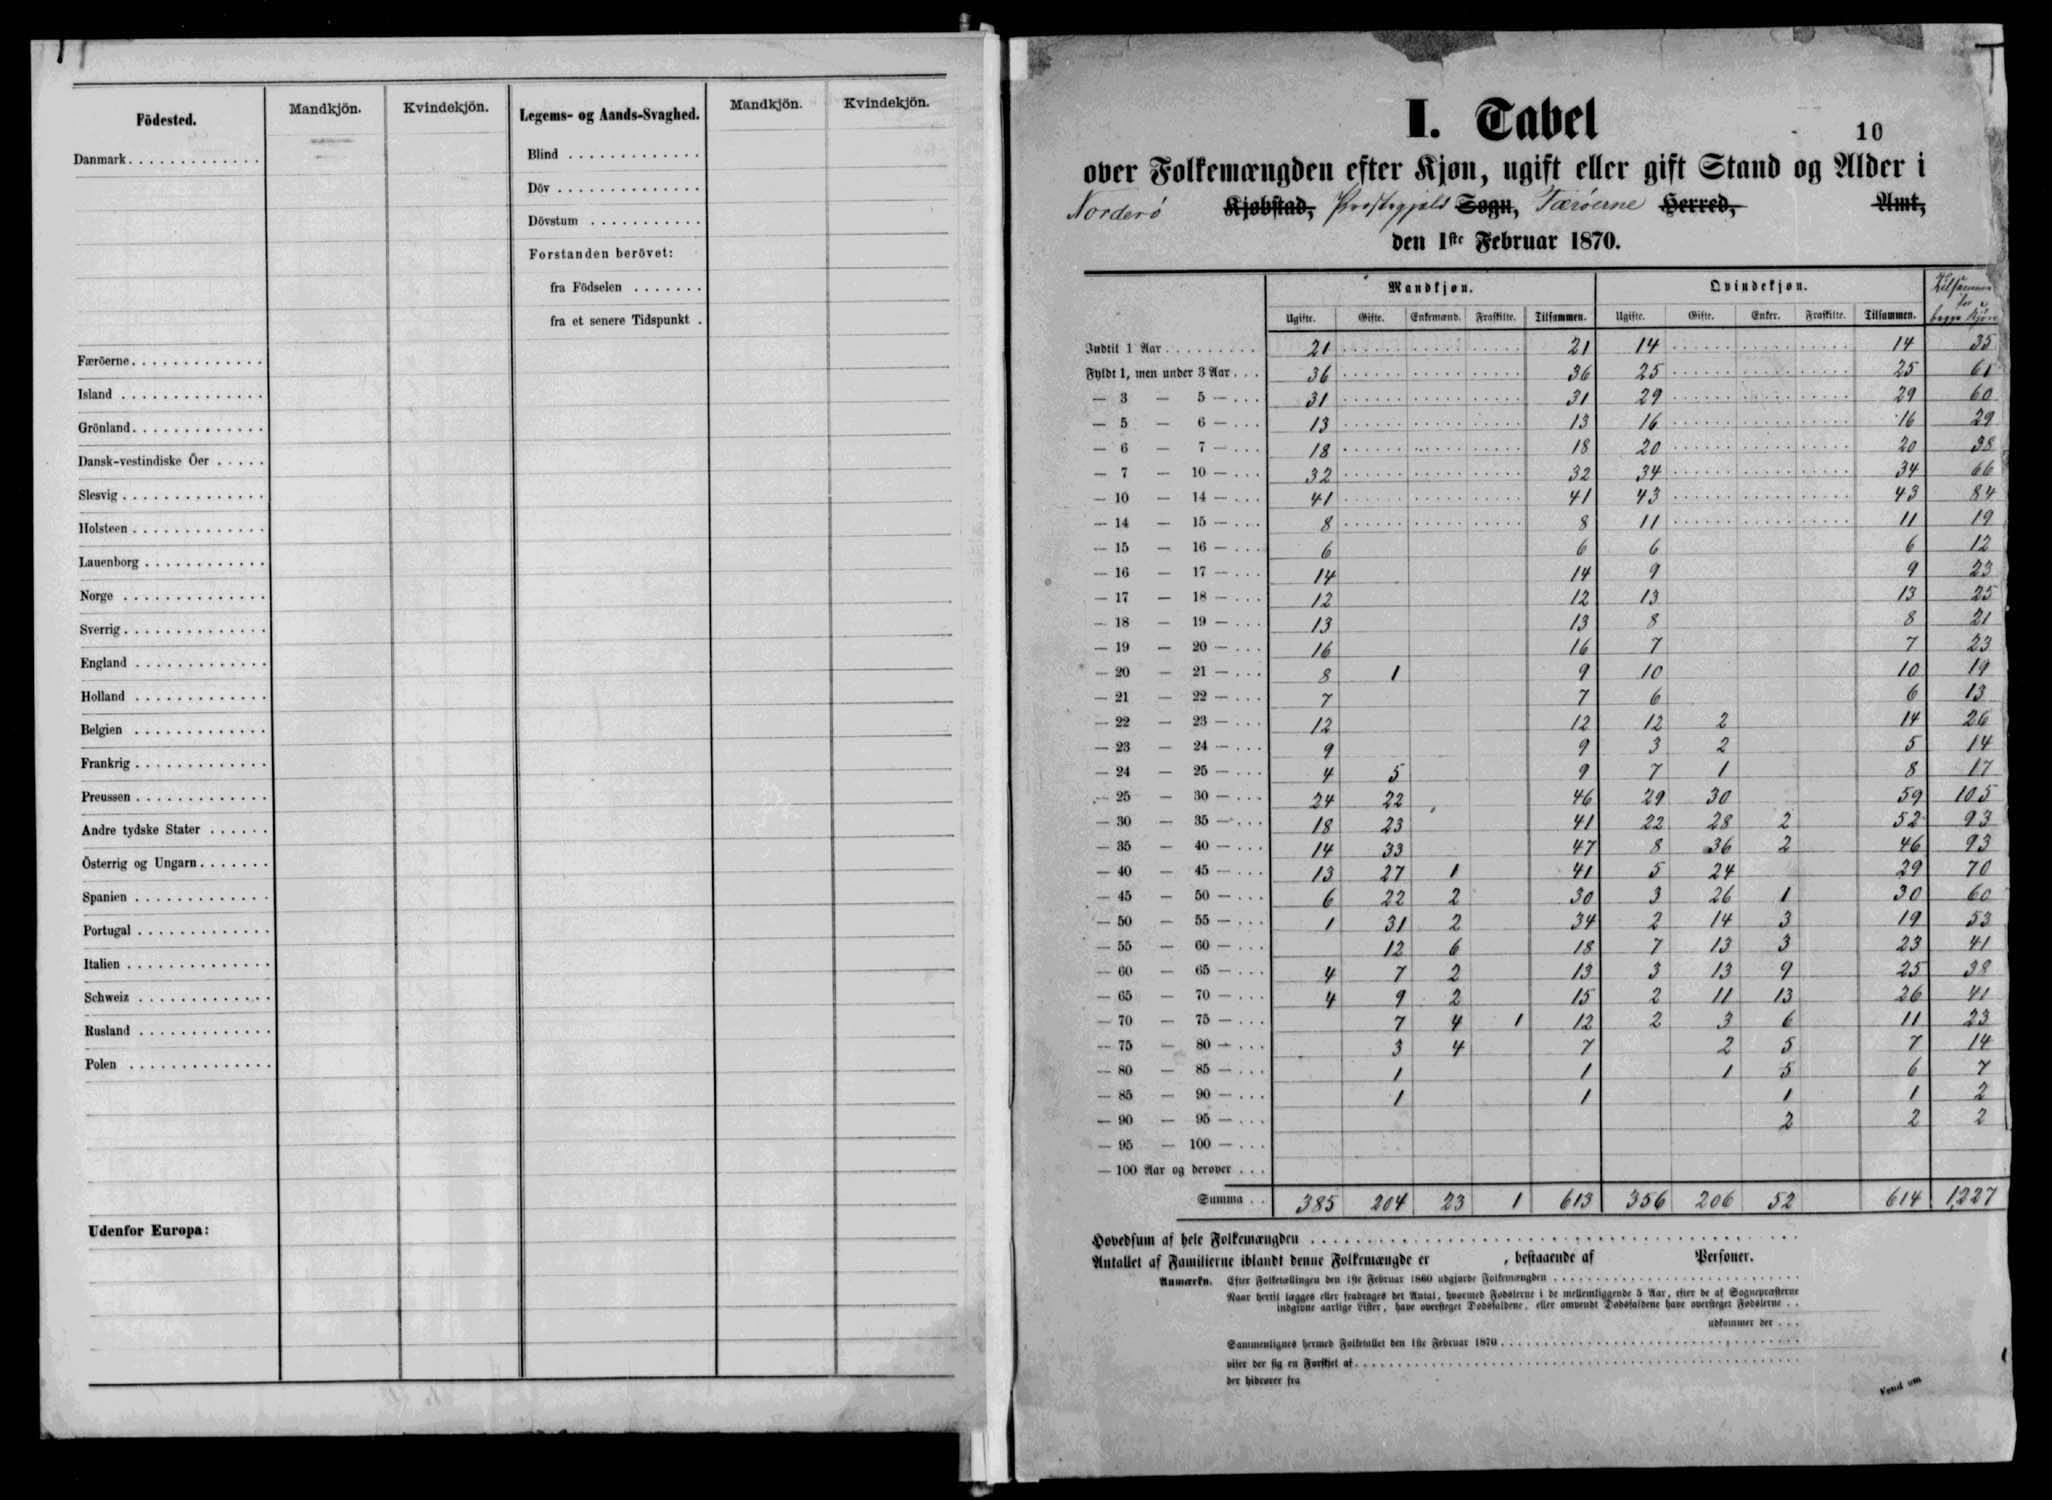 Födested. Mandkjön. Kvindekjön. Legems- og Aands-Svaghed. Mandkjön. Kvindekjön.
Danmark
Blind
Döv
Dövstum
Forstanden berövet:
fra Födselen
fra et senere Tidspunkt
Færöerne
Island
Grönland
Dansk-vestindiske Öer
Slesvig
Holsteen
Lauenborg
Norge
Sverrig
England
Holland
Belgien
Frankrig
Preussen
Andre tydske Stater
Österrig og Ungarn
Spanien
Portugal
Italien
Schweiz
Rusland
Polen
Udenfor Europa:
I. Tabel
10
over Folkemængden efter Kjøn, ugift eller gift Stand og Alder i
Norderø Kjøbstad, Præstegjæld Sogn, Færøerne Herred, Amt,
den 1ste Februar 1870.
Mandkjøn. Qvindekjøn. Tilsammen for begge Kjøn
Ugifte. Gifte. Enkemænd. Fraskilte. Tilsammen. Ugifte. Gifte. Enker. Fraskilte. Tilsammen.
Indtil 1 Aar 21 21 14 14 35
Fyldt 1, men under 3 Aar 36 36 25 25 61
— 3 — 5 — 31 31 29 29 60
— 5 — 6 — 13 13 16 16 29
— 6 — 7 — 18 18 20 20 38
— 7 — 10 — 32 32 34 34 66
— 10 — 14 — 41 41 43 43 84
— 14 — 15 — 8 8 11 11 19
— 15 — 16 — 6 6 6 6 12
— 16 — 17 — 14 14 9 9 23
— 17 — 18 — 12 12 13 13 25
— 18 — 19 — 13 13 8 8 21
— 19 — 20 — 16 16 7 7 23
— 20 — 21 — 8 1 9 10 10 19
— 21 — 22 — 7 7 6 6 13
— 22 — 23 — 12 12 12 2 14 26
— 23 — 24 — 9 9 3 2 5 14
— 24 — 25 — 4 5 9 7 1 8 17
— 25 — 30 — 24 22 46 29 30 59 105
— 30 — 35 — 18 23 41 22 28 2 52 93
— 35 — 40 — 14 33 47 8 36 2 46 93
— 40 — 45 — 13 27 1 41 5 24 29 70
— 45 — 50 — 6 22 2 30 3 26 1 30 60
— 50 — 55 — 1 31 2 34 2 14 3 19 53
— 55 — 60 — 12 6 18 7 13 3 23 41
— 60 — 65 — 4 7 2 13 3 13 9 25 38
— 65 — 70 — 4 9 2 15 2 11 13 26 41
— 70 — 75 — 7 4 1 12 2 3 6 11 23
— 75 — 80 — 3 4 7 2 5 7 14
— 80 — 85 — 1 1 1 5 6 7
— 85 — 90 — 1 1 1 1 2
— 90 — 95 — 2 2 2
— 95 — 100 —
— 100 Aar og derover
Summa 385 204 23 1 613 356 206 52 614 1,227
Hovedsum af hele Folkemængden
Antallet af Familierne iblandt denne Folkemængde er , bestaaende af Personer.
Anmærkn. Efter Folketællingen den 1ste Februar 1860 udgjorde Folkemængden
Naar hertil lægges eller fradrages det Antal, hvormed Fødslerne i de mellemliggende 5 Aar, efter de af Sognepræsterne
indgivne aarlige Lister, have oversteget Dødsfaldene, eller omvendt Dødsfaldene have oversteget Fødslerne
udkommer der
Sammenlignes hermed Folketallet den 1ste Februar 1870
viser der sig en Forskjel af
der hidrører fra
Vend om